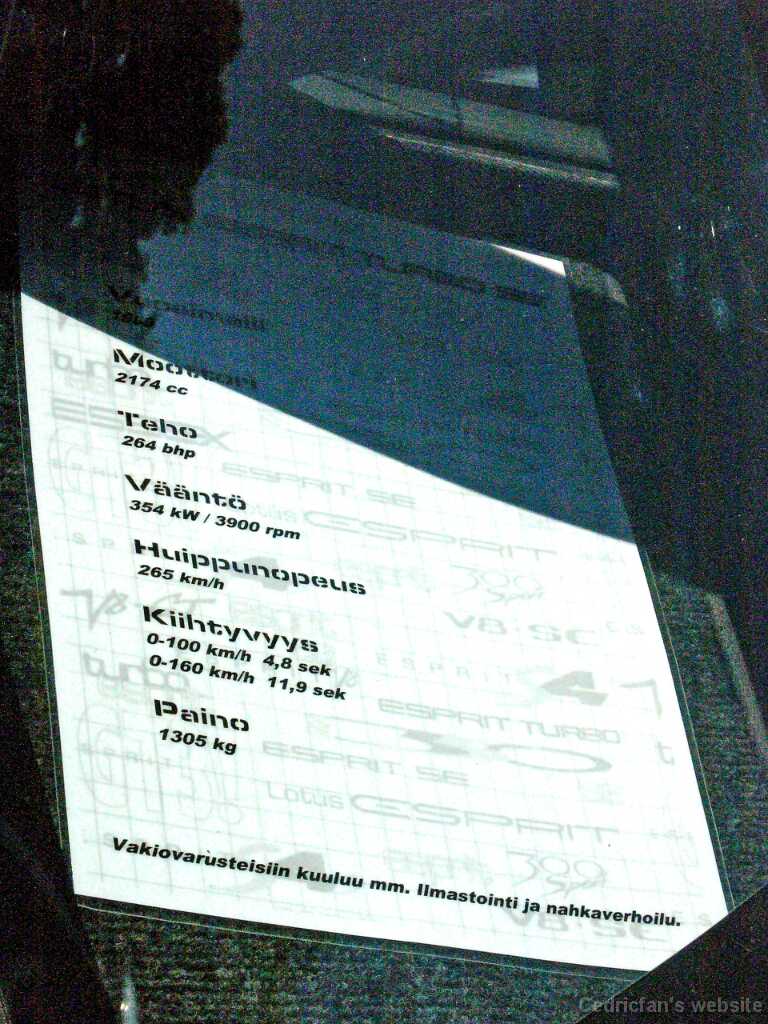 Moottori
2174 cc
Teho
264 bhp
Vääntö
354 kW / 3900 rpm
Huippunopeus
265 km/h
Kiihtyvyys
0-100 km/h 4,8 sek
0-160 km/h 11,9 sek
Paino
1305 kg
Vakiovarusteisiin kuuluu mm. Ilmastointi ja nahkaverhoilu.
turbo
ESPRIT SE
ESPRIT
300
V8·SE
turbo
ESPRIT TURBO
ESPRIT SE
Lotus ESPRIT
300
Cedricfan's website